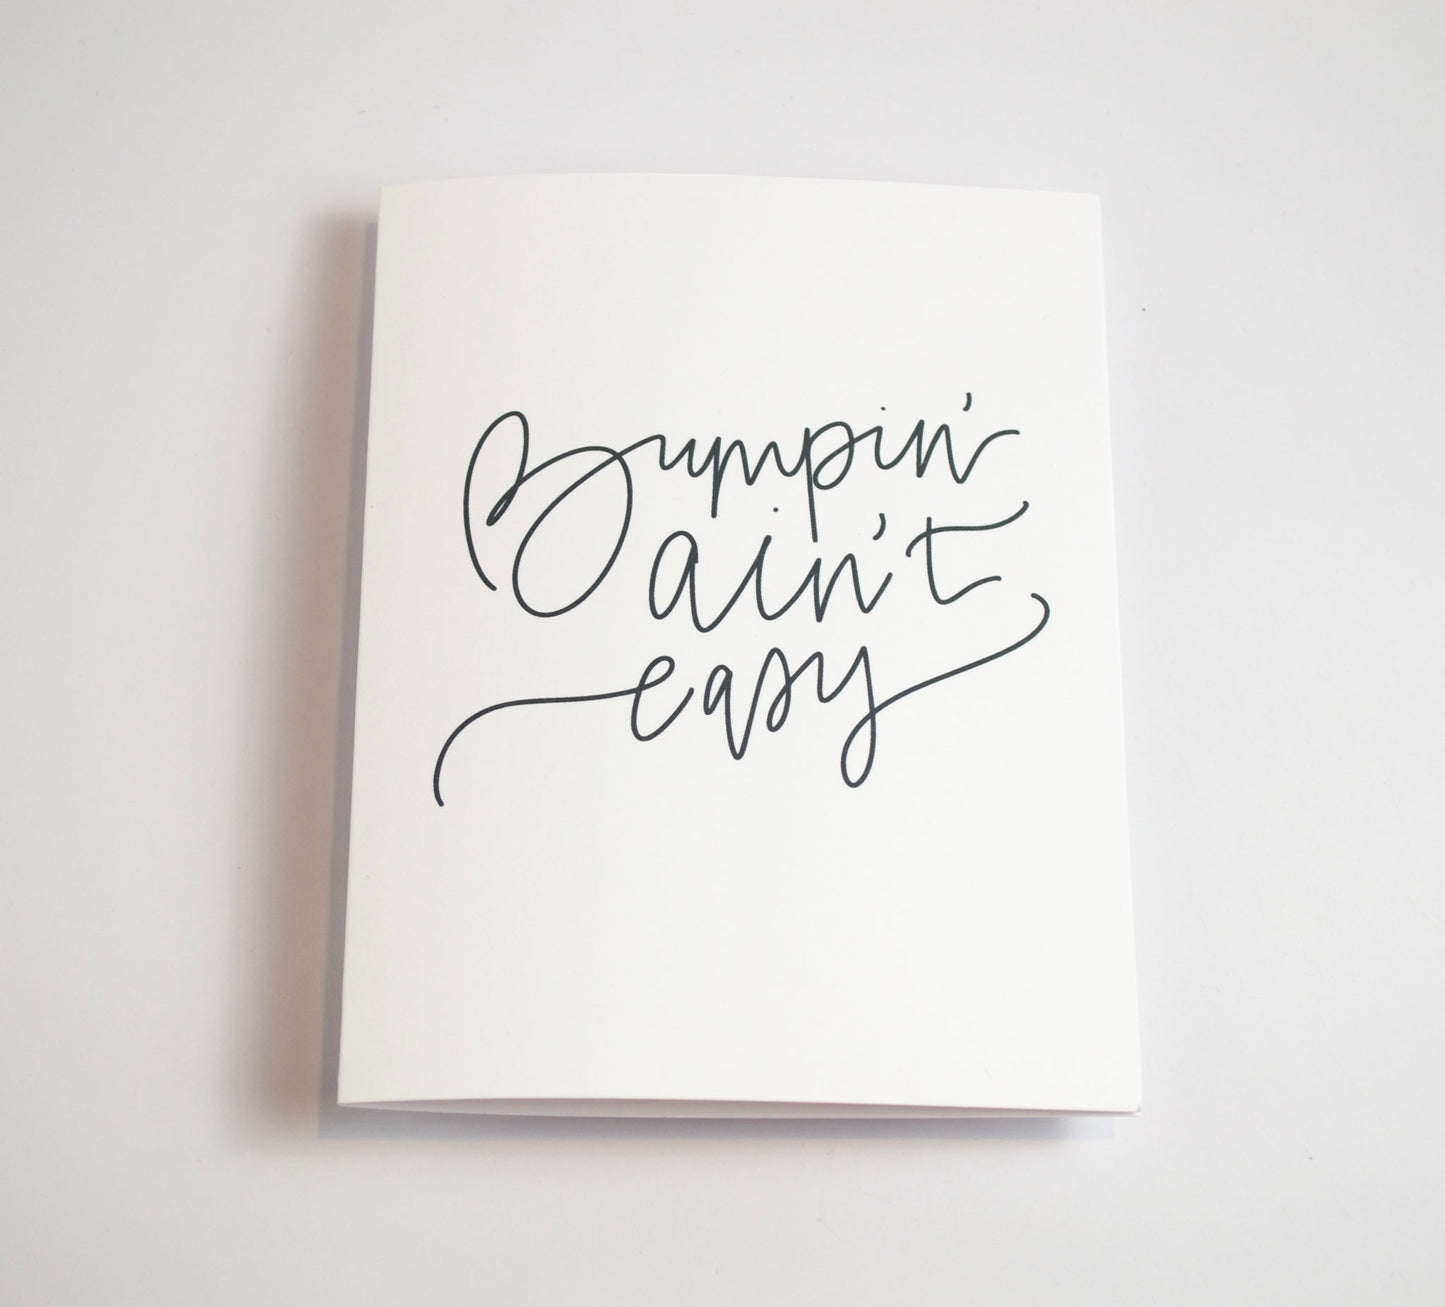 Bumpin'
ain't
easy